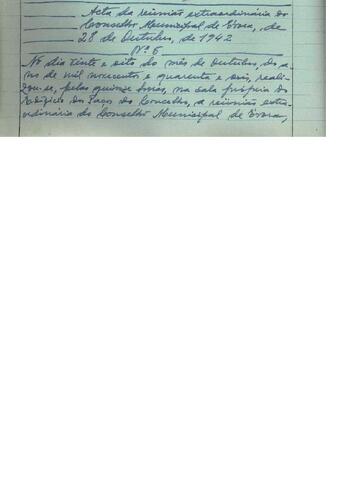 Acta da reünião extraordinária do
Conselho Municipal de Évora, de
28 de Outubro, de 1942
Nº 6
No dia vinte e oito do mês de Outubro, do a-
no de mil novecentos e quarenta e dois, reali-
zou-se, pelas quinze horas, na sala própria do
Edifício dos Paços do Concelho, a reünião extra-
ordinária do Conselho Municipal de Évora,